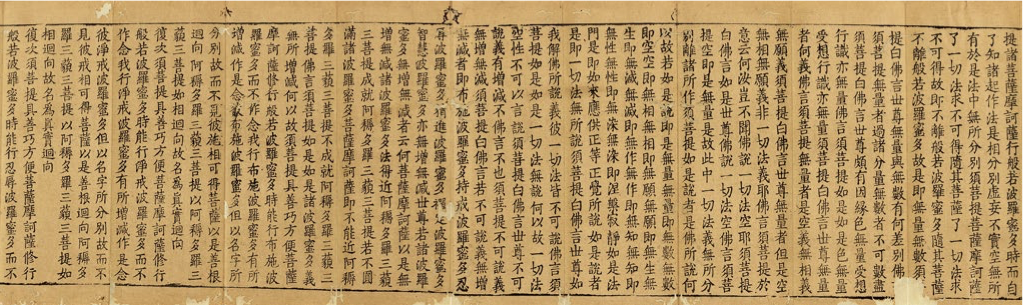 提諸菩薩摩訶薩行般若波羅蜜多時而自
了知諸起作法是相分別虛妄不實空無所
有於是法中無所分別須菩提菩薩摩訶薩
了一切法求不可得隨其菩薩了一切法求
不可得故即不離般若波羅蜜多隨其菩薩
不離般若波羅蜜多故是即無量無數須菩
提白佛言世尊無量與無數有何差別佛言
須菩提無量者過諸分量無數者不可數盡
須菩提白佛言世尊頗有因緣色無量受想
行識亦無量佛言須菩提如是如是色無量
受想行識亦無量須菩提白佛言世尊無量
者何法佛言須菩提無量者是空義無相
無願義須菩提白佛言世尊無量者但是空
無相無願義非一切法義耶佛言須菩提於
意云何汝豈不聞佛說一切法空耶須菩提
白佛言世尊佛說一切法空佛言須菩
提空即是無量是故此中一切法義無所分
別離諸所作須菩提如是說者是佛所說何
以故若如是說即是無量即是無數即是空
即空即無相即無相即無願即無願即無生無
生即無滅即無滅即無作即無作即無知即無知
即無性即無性即無染即無染即涅槃寂靜如是法
門是即如來應供正等正覺所說如是說者
是即一切法無所說須菩提白佛言世尊如
我解佛所說義彼一切法皆不可說佛言須
菩提如是如是一切法無說何以故一切法
空性不可以言說須菩提白佛言世尊不可
說義有增減不佛言不也須菩提不可說義
無增無減須菩提白佛言若不可說義無增
無減者即布施波羅蜜多持戒波羅蜜多忍
辱波羅蜜多精進波羅蜜多禪定波羅蜜多
智慧波羅蜜多亦無增減世尊若諸波羅
蜜多無增無減者云何菩薩摩訶薩以是無
增無減波羅蜜多法得近阿耨多羅三藐
三菩提成就阿耨多羅三藐三菩提若不圓
滿諸波羅蜜多菩薩摩訶薩即不能近阿耨
多羅三藐三菩提不成就阿耨多羅三藐三
菩提佛言須菩提如是如是諸波羅蜜多義
無所增減何以故須菩提具善巧方便菩薩
摩訶薩修行般若波羅蜜多時能行布施波
羅蜜多而不作念我行布施波羅蜜多有所
增減作是念此布施波羅蜜多但以名字所
分別故而不見彼施相可得菩薩以是善根
迴向阿耨多羅三藐三菩提以阿耨多羅三
藐三菩提如相迴向故名為真實迴向
復次須菩提具善巧方便菩薩摩訶薩修行
般若波羅蜜多時能行淨戒波羅蜜多而不
作念我行淨戒波羅蜜多有所增減作是念
彼淨戒波羅蜜多但以名字所分別故而不
見彼戒相可得菩薩以是善根迴向阿耨多
羅三藐三菩提以阿耨多羅三藐三菩提如
相迴向故名為真實迴向
復次須菩提具善巧方便菩薩摩訶薩修行
般若波羅蜜多時能行忍辱波羅蜜多而不